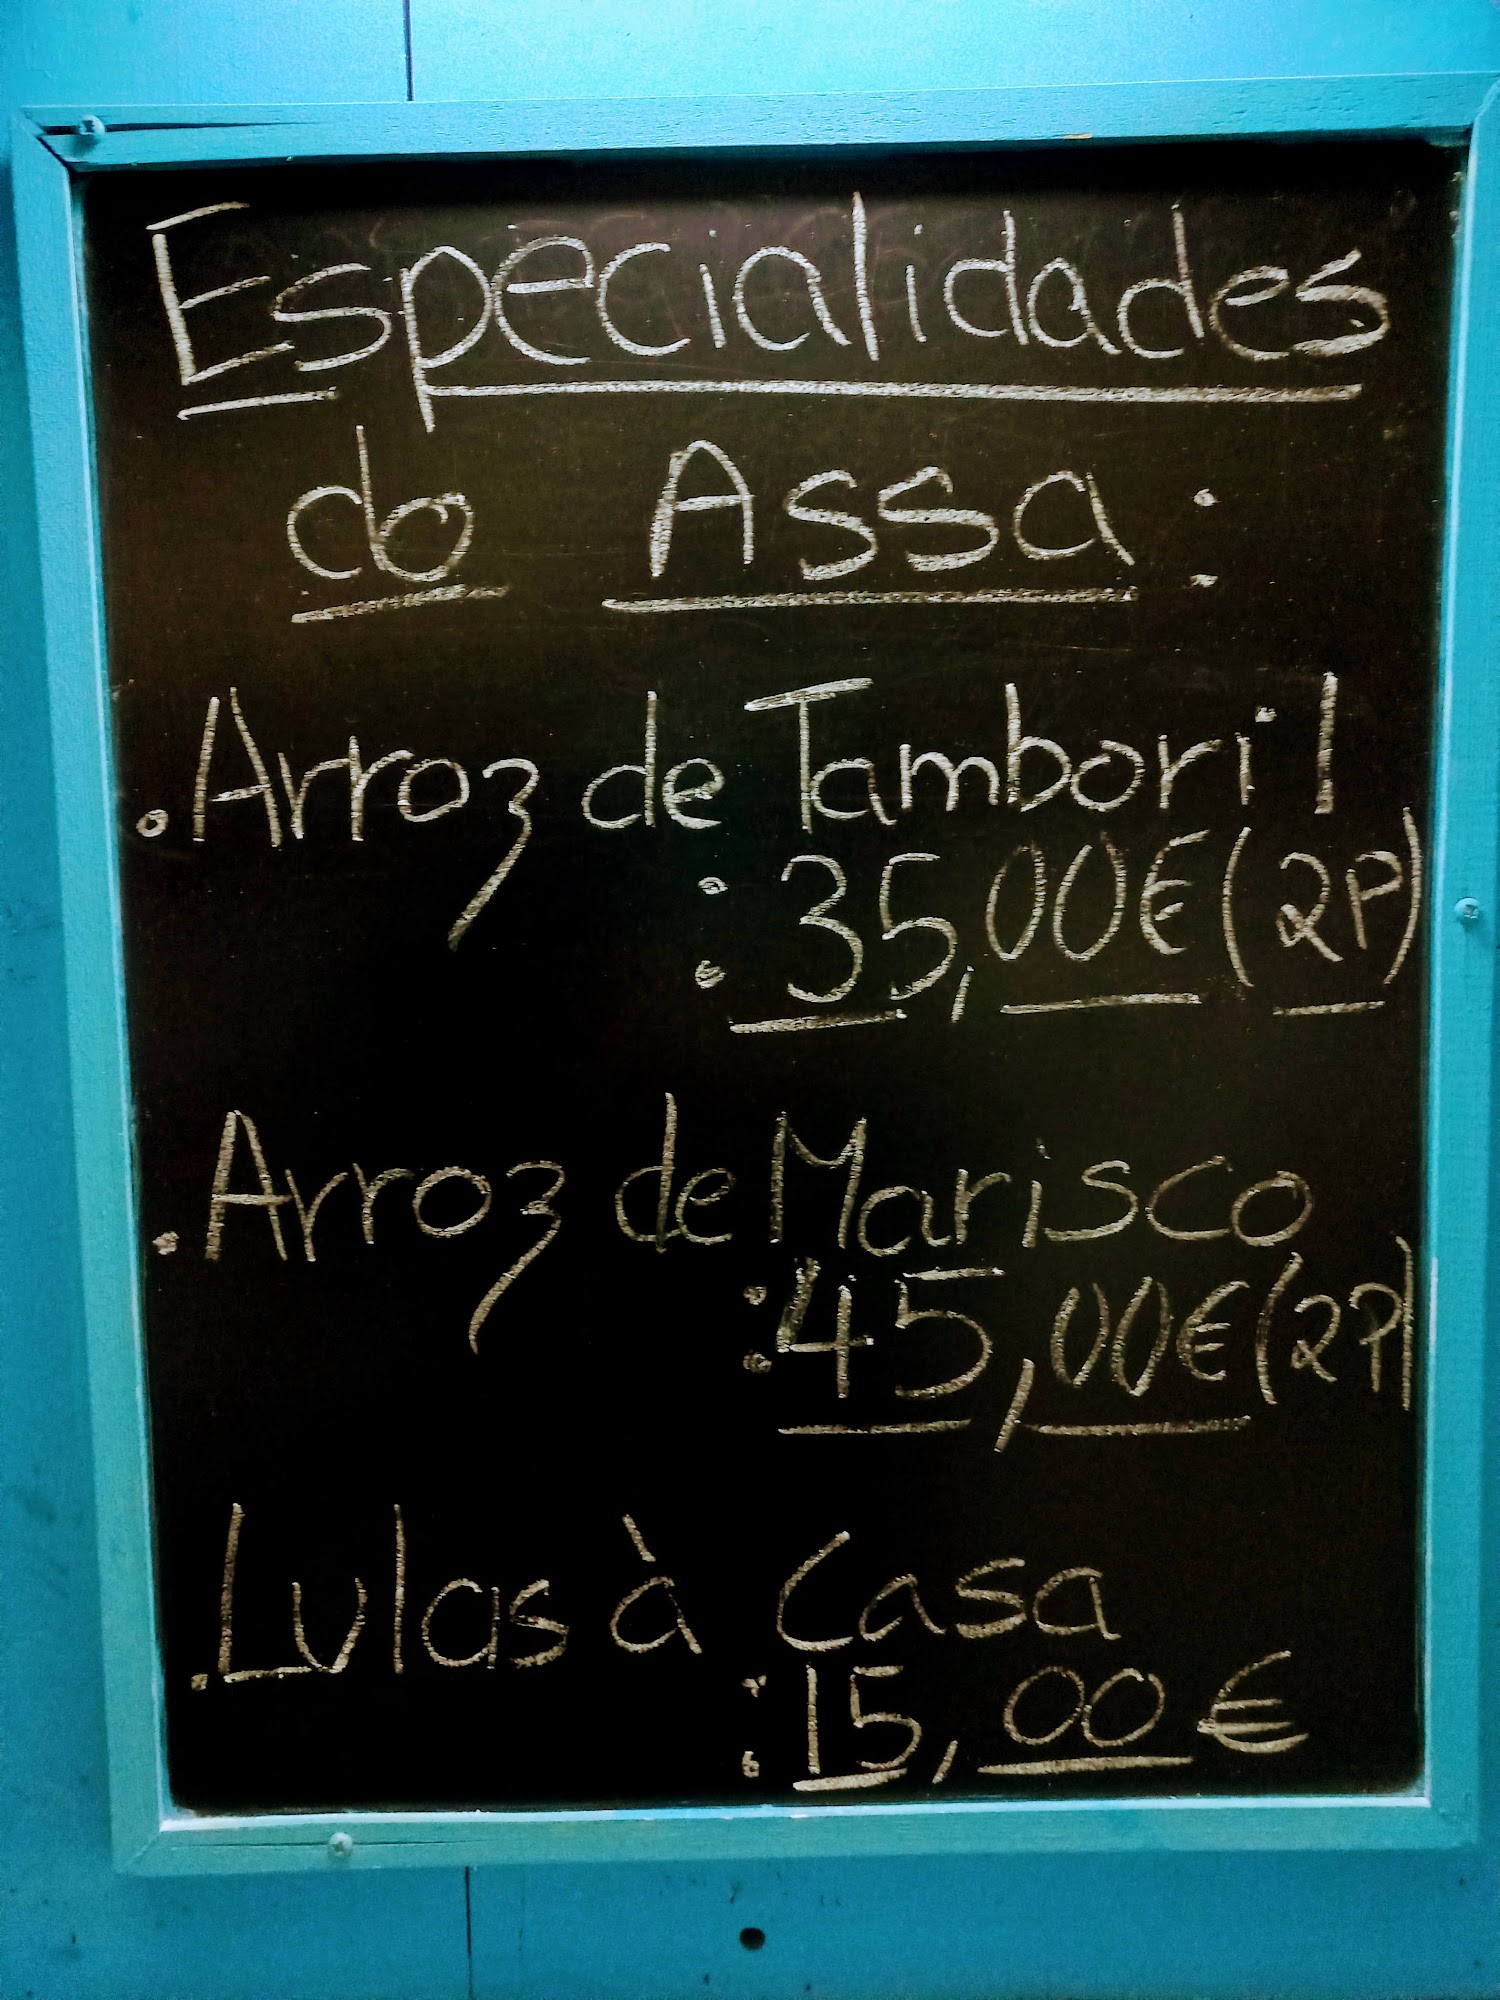 Especialidades
do Assa:
.Arroz de Tamboril
: 35,00€ (2P)
.Arroz de Marisco
: 45,00€ (2P)
.Lulas à Casa
: 15,00 €